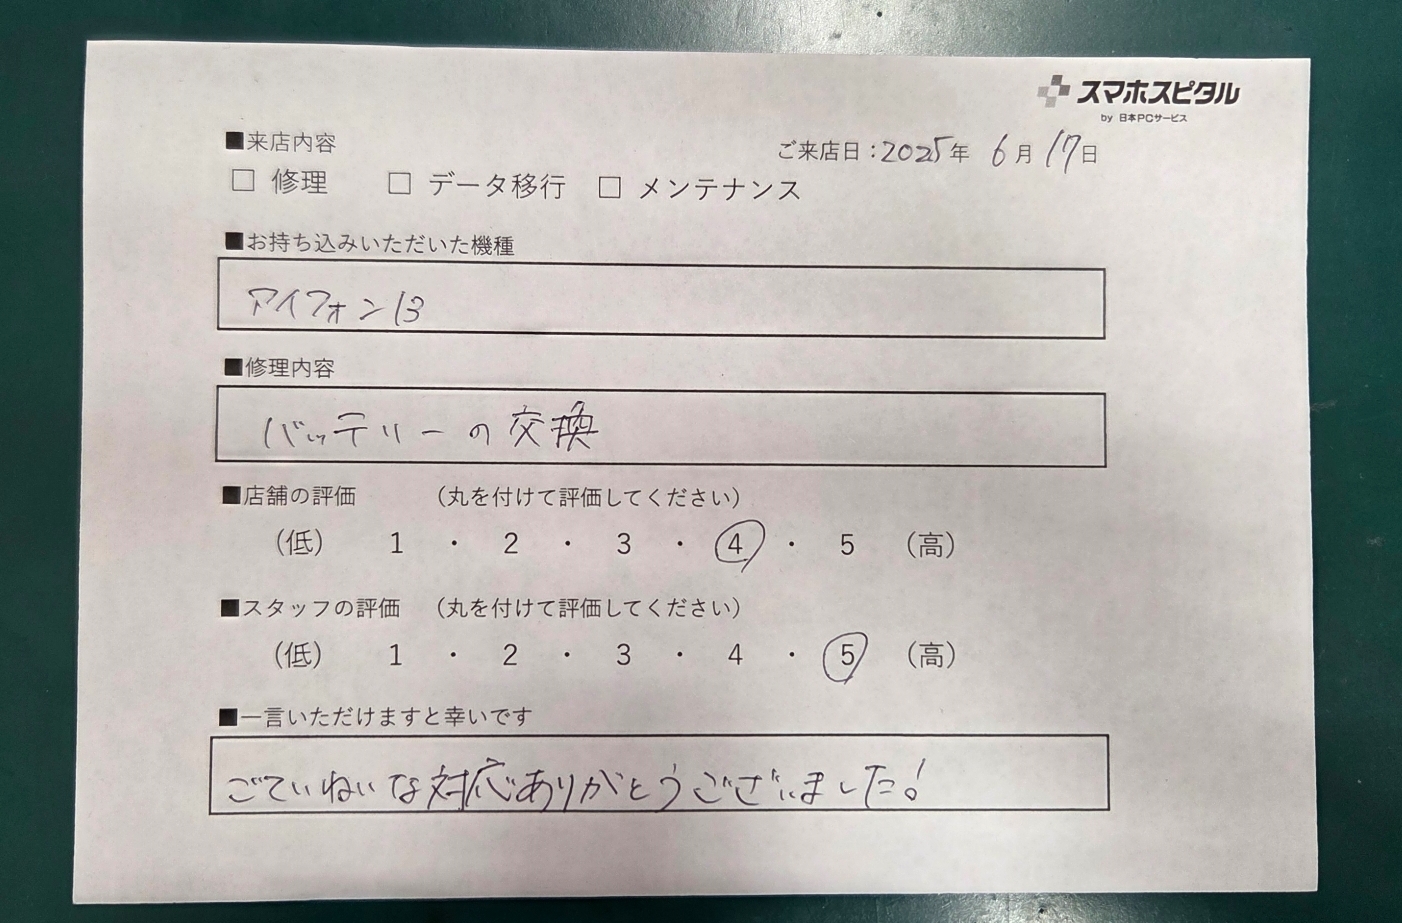 スマホスピタル
by 日本PCサービス
■来店内容
ご来店日：2025年 6月 17日
□ 修理 □ データ移行 □ メンテナンス
■お持ち込みいただいた機種
アイフォン13
■修理内容
バッテリーの交換
■店舗の評価 （丸を付けて評価してください）
（低） 1 ・ 2 ・ 3 ・ 4 ・ 5 （高）
■スタッフの評価 （丸を付けて評価してください）
（低） 1 ・ 2 ・ 3 ・ 4 ・ 5 （高）
■一言いただけますと幸いです
ごていねいな対応ありがとうございました！